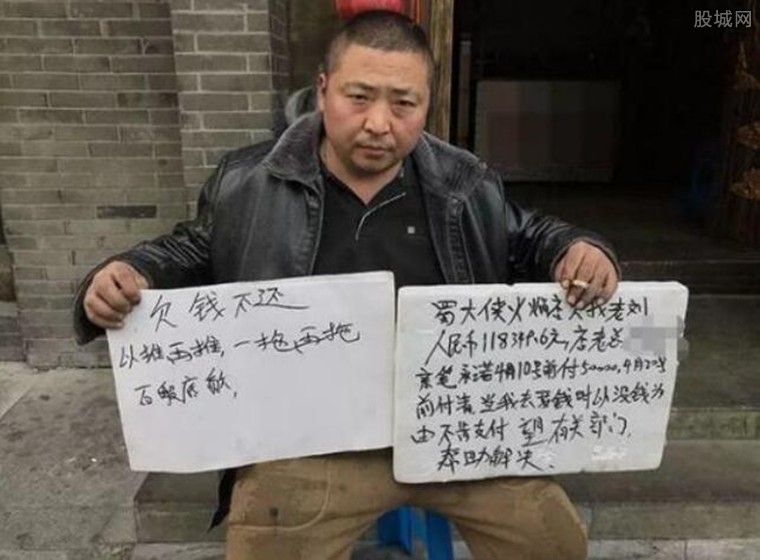 股城网
欠钱不还
以推再推,一拖再拖
百般底赖,
蜀大侠火锅店欠我老刘
人民币118399.6元,店老总
亲笔承诺4月10号前付50000,4月20号
前付清 当我去要钱时以没钱为
由不给支付 望有关部门,
帮助解决.